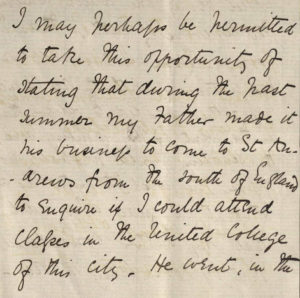 I may perhaps be permitted
to take this opportunity of
stating that during the past
summer my Father made it
his business to come to St An-
-drews from the south of England
to enquire if I could attend
classes in the United College
of this City. He went, in the